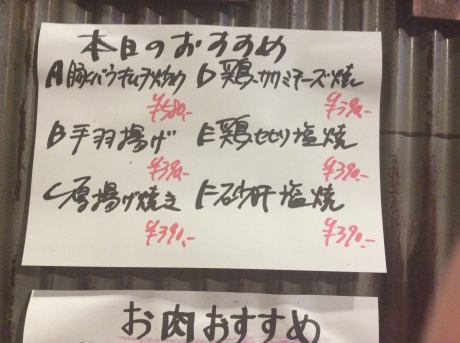 本日のおすすめ
A 豚バラキムチ炒め D 鶏ササミチーズ焼
¥580.- ¥390.-
B 手羽揚げ E 鶏せせり塩焼
¥390.- ¥390.-
C 厚揚げ焼き F 砂肝塩焼
¥390.- ¥390.-
お肉おすすめ